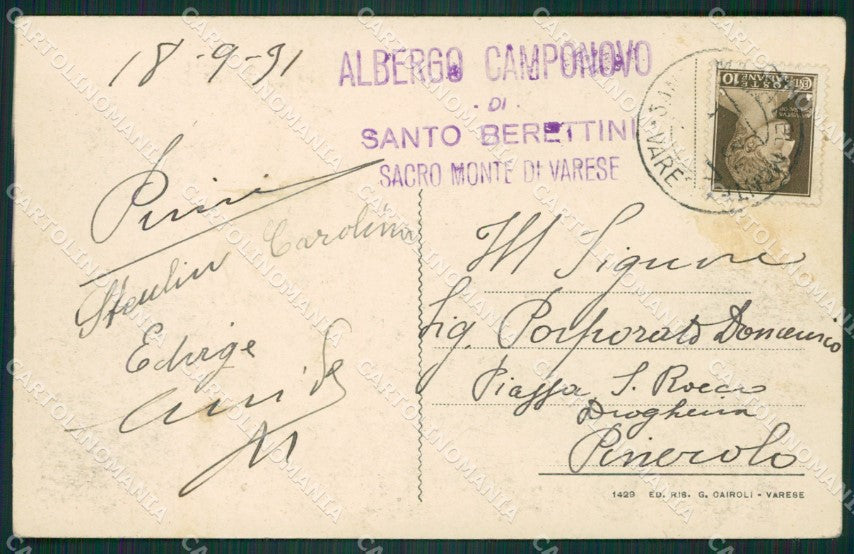 18-9-31
ALBERGO CAMPONOVO
DI
SANTO BERETTINI
SACRO MONTE DI VARESE
10
POSTE ITALIANE
VARESE
Carolina
Edvige
Ill Signore
Sig. Porporato Domenico
Piazza S. Rocco
Drogheria
Pinerolo
1429 ED. RIS. G. CAIROLI - VARESE
CARTOLINOMANIA